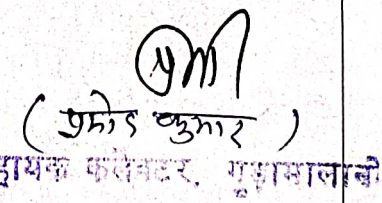 ( प्रमोद कुमार )
हायक कलेक्टर, गुड़ामालानी